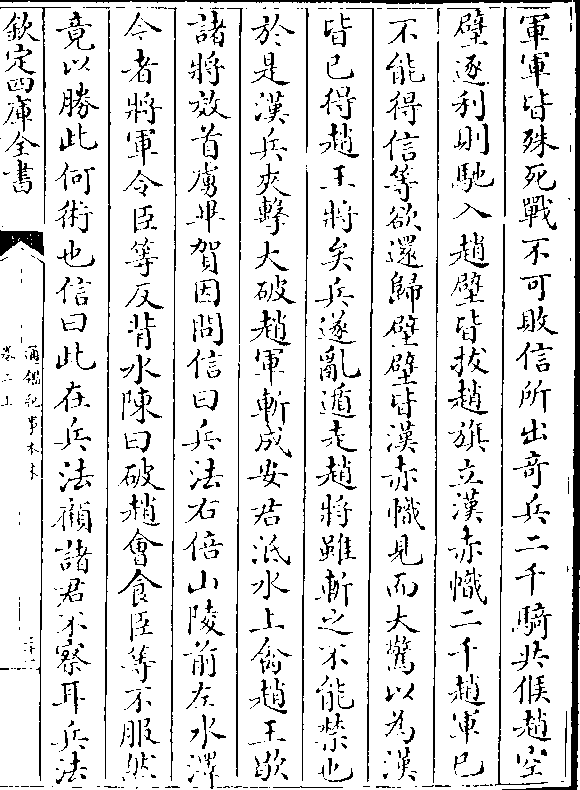 軍軍皆殊死戰不可敗信所出竒兵二千騎共候趙空
壁逐利則馳入趙壁皆拔趙旗立漢赤幟二千趙軍已
不能得信等欲還歸壁壁皆漢赤幟見而大驚以為漢
皆已得趙王將矣兵遂亂遁走趙將雖斬之不能禁也
於是漢兵夾擊大破趙軍斬成安君泜水上禽趙王歇
諸將效首虜畢賀因問信曰兵法右倍山陵前左水澤
今者將軍令臣等反背水陳曰破趙會食臣等不服然
竟以勝此何術也信曰此在兵法顧諸君不察耳兵法
欽定四庫全書
通鑑紀事本末
卷二上